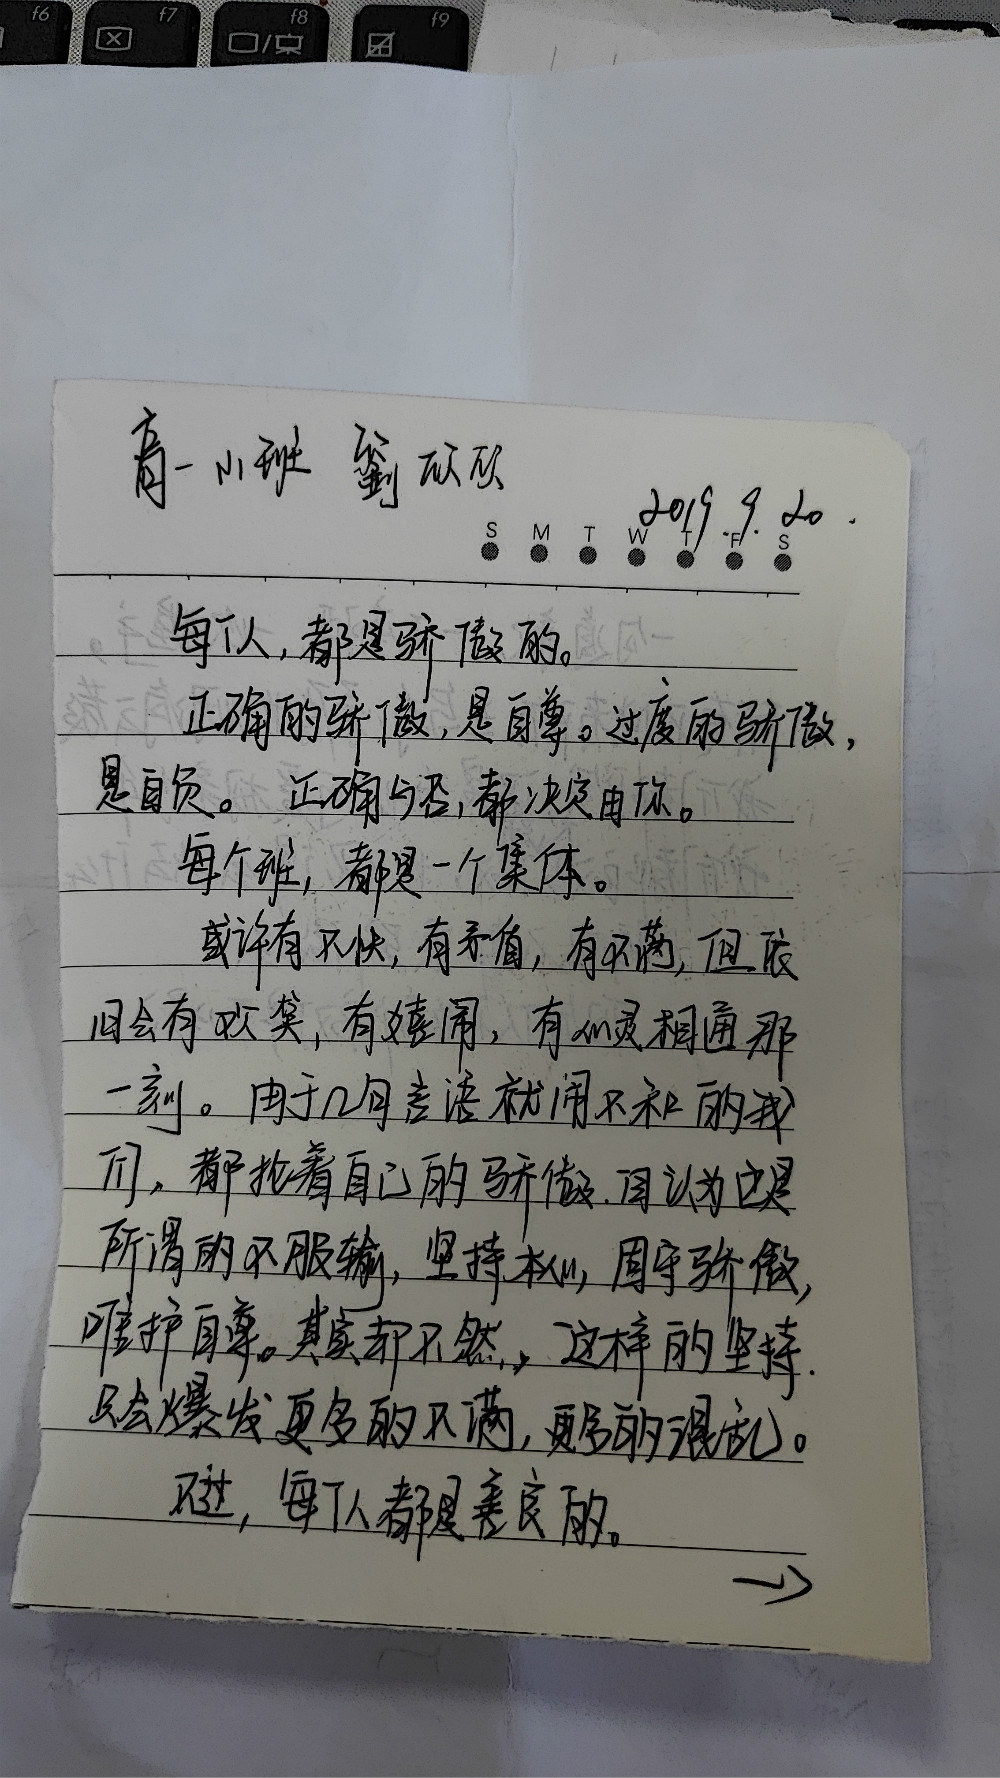 f6 f7 f8 f9
高一小班 劉欣欣
2019.9.20.
S M T W T F S
每个人,都是骄傲的。
正确的骄傲,是自尊。过度的骄傲,
是自负。 正确与否,都决定由你。
每个班,都是一个集体。
或许有不快,有矛盾,有不满,但依
旧会有欢笑,有嬉闹,有心灵相通那
一刻。由于几句言语就闹不和的我
们,都抱着自己的骄傲.自认为这是
所谓的不服输,坚持本心,固守骄傲,
维护自尊。其实却不然,,这样的坚持.
只会爆发更多的不满,更多的混乱。
不过,每个人都是善良的。
→